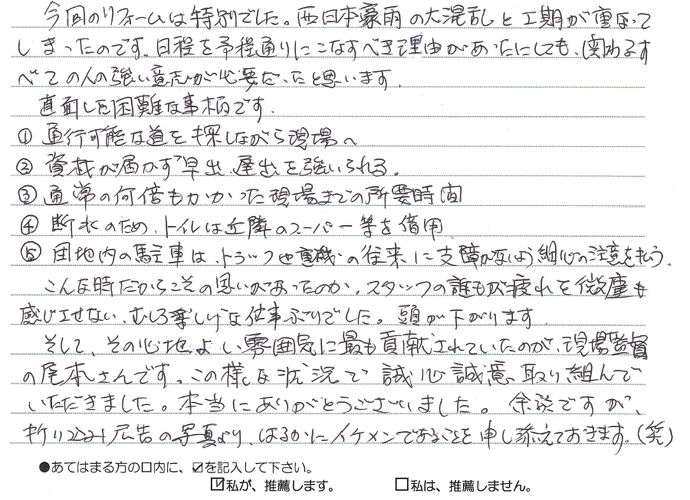 今回のリフォームは特別でした。西日本豪雨の大混乱と工期が重なって
しまったのです。日程を予程通りにこなすべき理由があったにしても、関わるす
べての人の強い意志が必要だったと思います。
直面した困難な事柄です。
① 通行可能な道を探しながら現場へ
② 資材が届かず早出、遅出を強いられる。
③ 通常の何倍もかかった現場までの所要時間
④ 断水のため、トイレは近隣のスーパー等を借用
⑤ 団地内の駐車は、トラックや重機の往来に支障がないよう細心の注意を払う。
こんな時だからこその思いがあったのか、スタッフの誰もが疲れを微塵も
感じさせない、むしろ楽しげな仕事ぶりでした。頭が下がります。
そして、その心地よい雰囲気に最も貢献されていたのが、現場監督
の尾本さんです。この様な状況で誠心誠意取り組んで
いただきました。本当にありがとうございました。余談ですが、
折り込み広告の写真より、はるかにイケメンであることを申し添えておきます。(笑)
●あてはまる方の口内に、☑を記入して下さい。
☑私が、推薦します。 □私は、推薦しません。